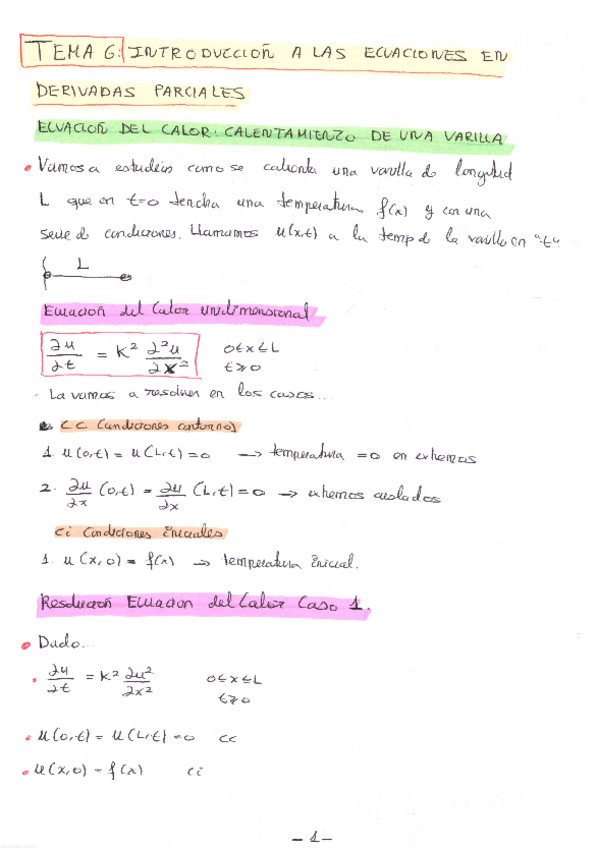 TEMA 6: INTRODUCCIÓN A LAS ECUACIONES EN
DERIVADAS PARCIALES
ECUACIÓN DEL CALOR: CALENTAMIENTO DE UNA VARILLA
• Vamos a estudiar como se calienta una varilla de longitud
L que en t=0 tendra una temperatura f(x) y con una
serie de condiciones. Llamamos u(x,t) a la temp de la varilla en "t"
L
Ecuación del Calor Unidimensional
∂u/∂t = K² ∂²u/∂x² 0≤x≤L
t≥0
- La vamos a resolver en los casos...
CC (Condiciones contorno)
1. u(0,t) = u(L,t) = 0 → temperatura = 0 en extremos
2. ∂u/∂x (0,t) = ∂u/∂x (L,t) = 0 → extremos aislados
Ci Condiciones Iniciales
1. u(x,0) = f(x) → temperatura inicial.
Resolución Ecuacion del Calor Caso 1.
• Dado...
• ∂u/∂t = K² ∂u²/∂x² 0≤x≤L
t≥0
• u(0,t) = u(L,t) = 0 CC
• u(x,0) = f(x) Ci
- 1 -